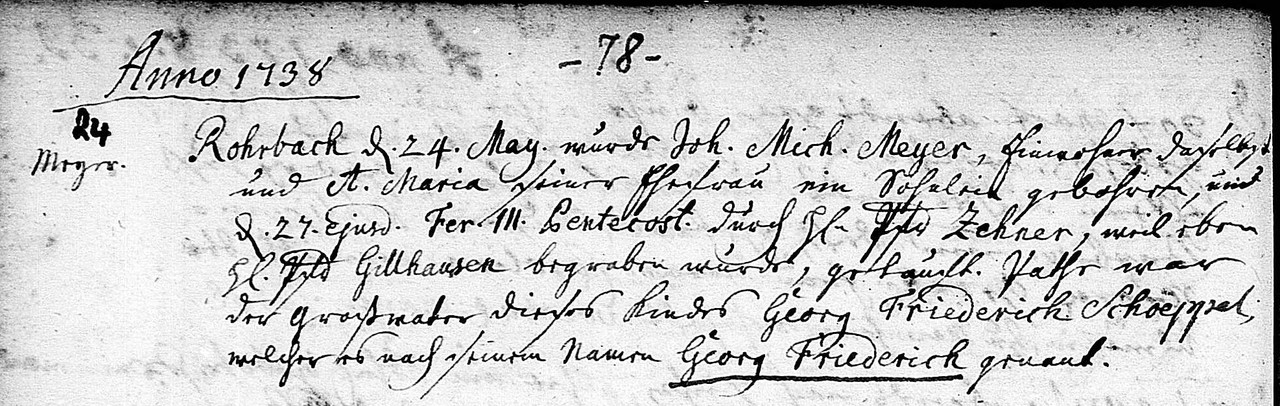 - 78 -
Anno 1738
24
Meyer.
Rohrbach d. 24. May. wurde Joh. Mich. Meyer, Einwohner daselbst
und A. Maria seiner Ehefrau ein Söhnlein gebohren, und
d. 27. Ejusd. Fer. III. Pentecost. durch H. Pfd Zehner, weil eben
H. Pfd Gillhausen begraben wurde, getauft. Pathe war
der Großvater dieses Kindes Georg Friederich Schoeppel,
welcher es nach seinem Namen Georg Friederich genant.